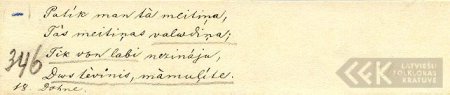 Patīk man tā meitiņa,
Tās meitiņas valodiņa;
Tik von labi nezināju,
Dus tēvinis, māmulīte.
346
18. Dohne.
LATVIEŠU
FOLKLORAS
KRĀTUVE